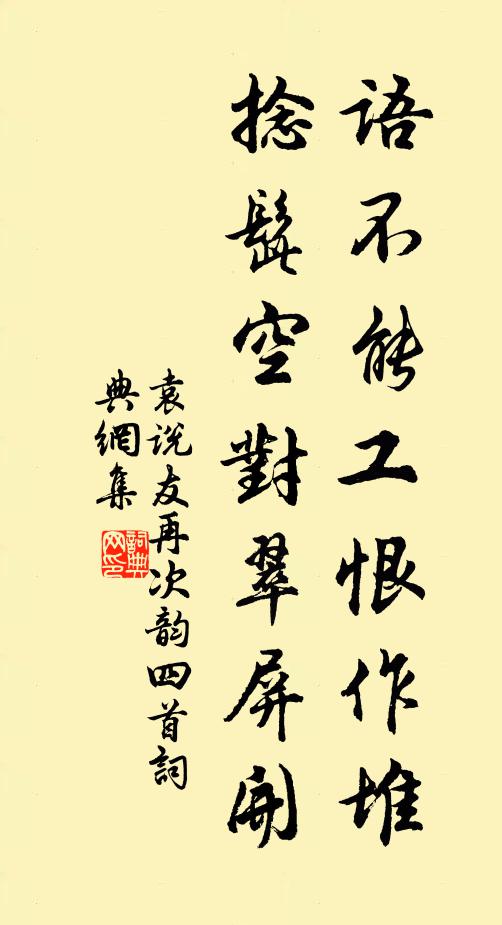 語不能工恨作堆
捻髭空對翠屏開
袁说友再次韵四首詞
典網集
詞典
网印